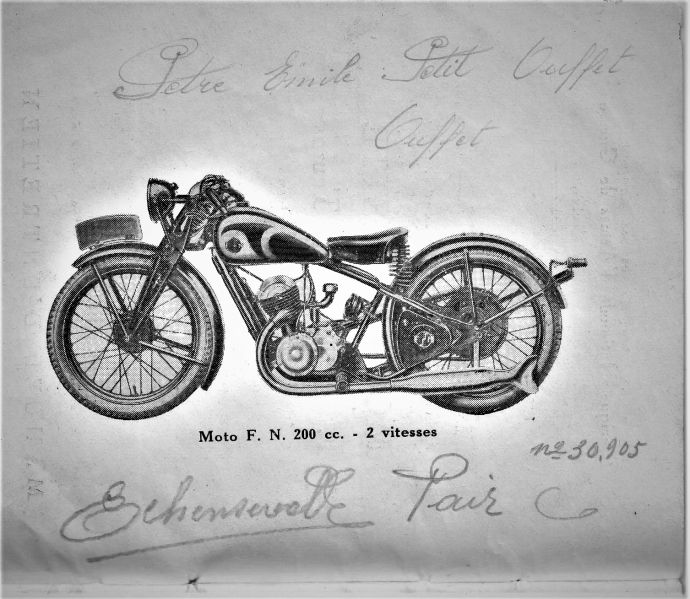 Petre Emile Petit Ouffet
Ouffet
Moto F. N. 200 cc. - 2 vitesses
nº 30,905
Pair